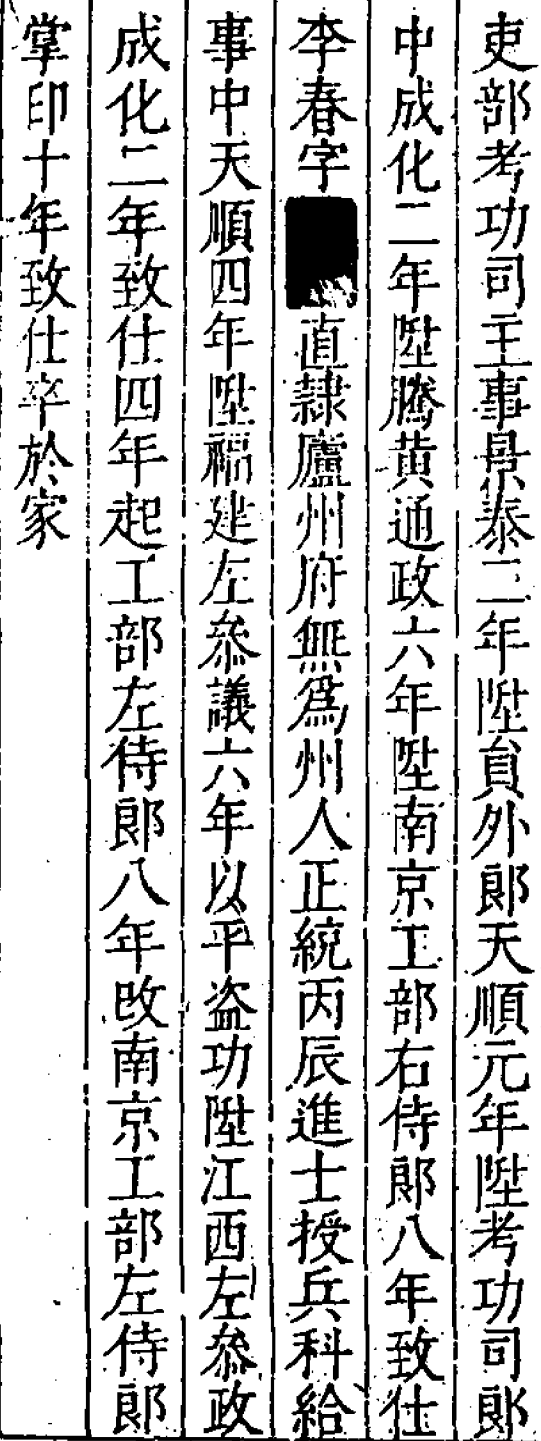 吏部考功司主事景泰二年陞員外郎天順元年陞考功司郎
中成化二年陞謄黄通政六年陞南京工部右侍郎八年致仕
李春字直隷廬州府無爲州人正統丙辰進士授兵科給
事中天順四年陞福建左叅議六年以平盗功陞江西左叅政
成化二年致仕四年起工部左侍郎八年改南京工部左侍郎
掌印十年致仕卒於家